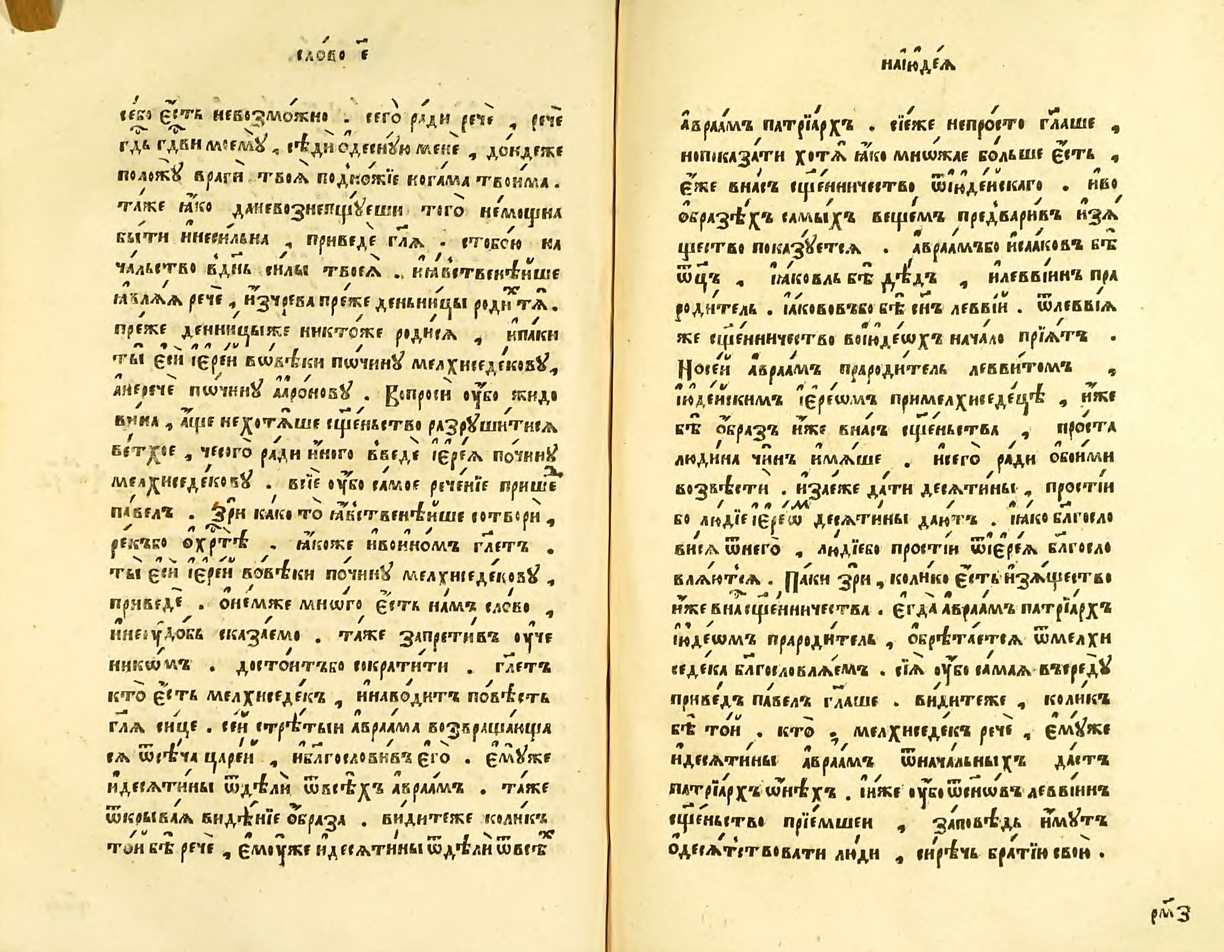 сло́во є҃
себо̀ є҆́сть невозмо́жно . сего̀ ра́ди речѐ , речѐ
гд҇ь гд҇ви моемꙋ̀ , сѣдѝ ѡ҆деснꙋ́ю менѐ , до́ндеже
положꙋ̀ врагѝ твоѧ̀ подно́жїе нога́ма твои́ма .
та́же ꙗ҆́ко даневознепщꙋ́еши того̀ не́мощна
бы́ти и҆неси́льна , приведѐ гл҃ѧ . стобо́ю на
ча́льство вдн҃ь си́лы твоеѧ̀ . и҆ꙗ҆́вственѣйше
ꙗ҆влѧ́ѧ речѐ , и҆зчре́ва пре́же деньни́цы роди́х тѧ̀ .
пре́же денни́цыже никто́же роди́сѧ , и҆па́ки
ты̀ є҆сѝ і҆ере́й вовѣ́ки почи́нꙋ мелхиседе́ковꙋ ,
а҆неречѐ почи́нꙋ а҆аро́новꙋ . Вопросѝ ᲂу҆̀бо жидо
ви́на , а҆́ще нехотѧ́ше сщ҃е́ньство разрꙋши́тисѧ
ве́тхое , чесого̀ ра́ди и҆́ного введѐ і҆ере́ѧ почи́нꙋ
мелхиседе́ковꙋ . всїѐ ᲂу҆̀бо са́мое рече́нїе прише́д
па́велъ . Зрѝ ка́ко то̀ ꙗ҆́вственѣйше сотворѝ ,
ре́къбо ѻ҆хр҇тѣ̀ . ꙗ҆́коже и҆вои́номъ гл҃етъ .
ты̀ є҆сѝ і҆ере́й вовѣ́ки почи́нꙋ мелхиседе́ковꙋ ,
приведѐ . о҆не́мже мно́го є҆́сть на́мъ сло́во ,
и҆неᲂу҆до́бь сказа́емо . та́же запрети́въ ᲂу҆че
никѡ́мъ . досто́итъбо сократи́ти . гл҃етъ
кто̀ є҆́сть мелхиседе́къ , и҆наво́дитъ по́вѣсть
гл҃ѧ си́це . се́й стрѣ́тый а҆враа́ма возвраща́юща
сѧ ѿсѣ́ча царе́й , и҆благослови́въ є҆го̀ . є҆мꙋ́же
и҆десѧти́ны ѿдѣлѝ ѿвсѣ́хъ а҆враа́мъ . та́же
ѿкрыва́ѧ видѣ́нїе ѡ҆́браза . ви́дитеже коли́къ
то́й бѣ̀ речѐ , є҆мꙋ́же и҆десѧти́ны ѿдѣлѝ ѿвсѣ́х
наі҆юде́ѧ
а҆враа́мъ патрїа́рхъ . сїе́же непро́сто гл҃аше ,
нопоказа́ти хотѧ̀ ꙗ҆́ко мно́жае бо́льше є҆́сть ,
є҆́же вна́съ сщ҃е́нничество ѿі҆юде́йскаго . и҆во
ѡ҆́бразѣхъ са́мыхъ веще́мъ предвари́въ и҆зѧ́
щество показꙋ́етсѧ . а҆враа́мъбо и҆саа́ковъ бѣ̀
ѿц҃ъ , і҆а́ковль бѣ̀ дѣ́дъ , и҆левви́инъ пра
роди́тель . і҆а́кововъбо бѣ̀ сн҃ъ левві́й . ѿлевві́ѧ
же сщ҃е́нничество воі҆юде́ѡхъ нача́ло прїѧ́тъ .
Носе́й а҆враа́мъ прароди́тель левви́томъ ,
і҆юде́йскимъ і҆ере́ѡмъ примелхиседе́цѣ , и҆́же
бѣ̀ ѡ҆́бразъ и҆́же вна́съ сщ҃е́ньства , про́ста
лю́дина чи́нъ и҆мѧ́ше . и҆сего̀ ра́ди ѻ҆бои́ми
возвѣстѝ . и҆зае́же да́ти десѧти́ны , про́стїи
бо лю́дїе і҆ере́ѡм десѧти́ны даю́тъ . ꙗ҆́ко блг҃осло
ви́сѧ ѿнего̀ , лю́дїебо про́стїи ѿі҆ере́ѧ блг҃осло
влѧ́ютсѧ . Па́ки зрѝ , коли́ко є҆́сть и҆зѧ́щество
и҆́же вна́с сщ҃е́нничества . є҆гда̀ а҆враа́мъ патрїа́рхъ
і҆юде́ѡмъ прароди́тель , ѡ҆брѣта́етсѧ ѿмелхи
седе́ка блг҃ословлѧ́емъ . сїѧ̀ ᲂу҆̀бо са́маѧ въередꙋ̀
приве́дъ па́велъ гл҃аше . ви́дитеже , коли́къ
бѣ̀ то́й . кто̀ , мелхиседе́къ речѐ , є҆мꙋ́же
и҆десѧти́ны а҆враа́мъ ѿнача́льныхъ да́стъ
патрїа́рхъ ѡ҆нѣ́хъ . и҆и҆́же ᲂу҆̀бо ѿсынѡ́въ левви́инъ
сщ҃е́ньство прїе́мшеи , за́повѣдь и҆́мꙋтъ
ѻ҆десѧ́тствовати лю́ди , си́рѣчь бра́тїю свою̀ .
рм҃з